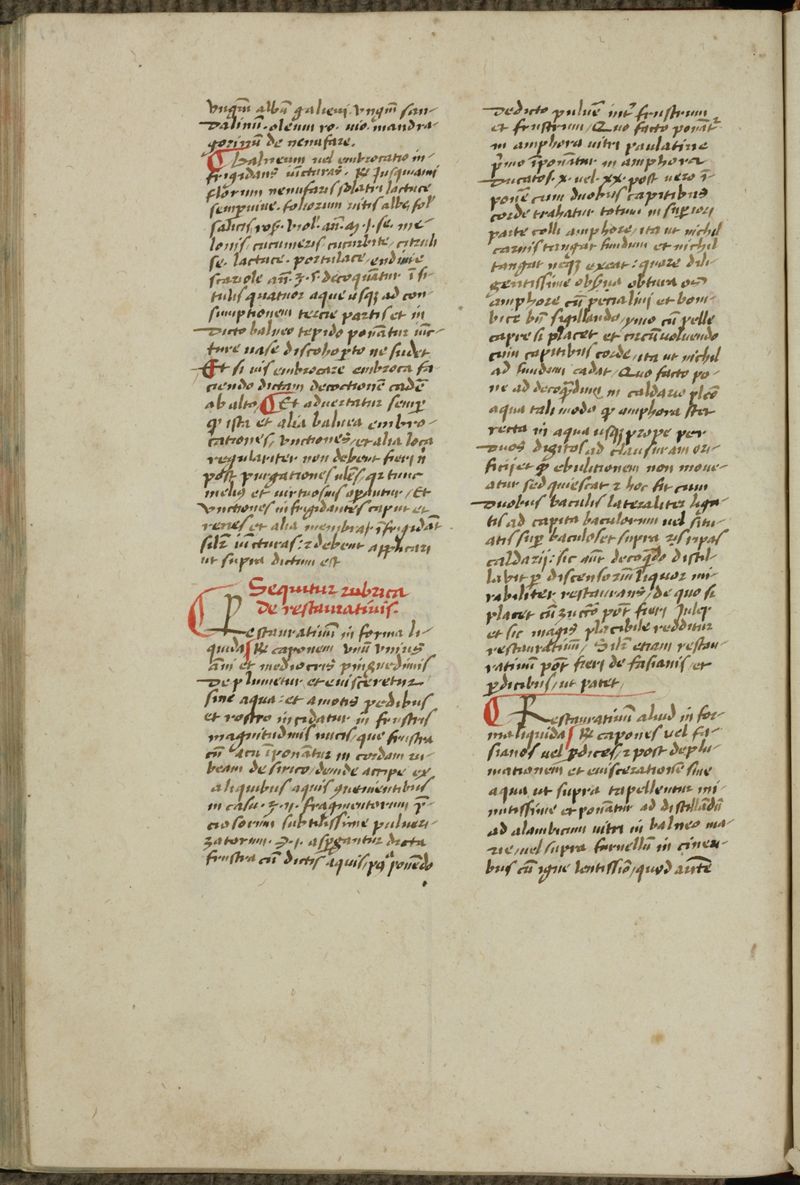 vnqm̄ albū galieni. vnqm̄ san-
dalinū. oleum ro. vio. mandra-
gorinū de nenufare.
Balneum vel embrocatio in-
frigidans iūcturas. ℞ Jusquiami
florum nenufaris solatri lactuce
sempuiue. foliorum uitis albe, fol̓
salicis ros. viol. añ. m. j. se. me-
lonis cucumeris cucurbite, citruli
se. lactuce. portulace, endiuie
scariole añ. ℥. s. decoquātur ī si-
tulis quatuor aque usqꝫ ad con-
sumptionem tercie partis et in
dicto balneo tepido ponātur iūc-
ture uase discohopto ne sudet
Et si vis embrocare embroca fa-
ciendo dictam decoctionē cadē
ab alto, Et aduertatur semp
ꝙ ista et alia balnea embro-
cationes, vnctiones, et alia loca
regulariter non debent fieri n̄
post purgationes vl̄es, qꝛ tunc
melius et virtuosius opantur, Et
vnctiones infrigidantes caput et
renes, et alia membra, īfrigidāt
sil̄r iūcturas: ⁊ debent applicari
ut supra dictum est
Sequitur rubrica
de restauratiuis.
Restauratiuū in forma li-
quida, ℞ caponem vnū vnius
āni et mediocris pinguedinis
deplumetur et euisceretur
sine aqua: et amotis pedibus
et rostro incidatur in frustris
magnitudinis nucis, que frustra
cū acu īponātur in cordam ru-
beam de sirico, deinde accipe ex
aliquibus aquis
in casu. ℥. ij. fragmentorum p̄-
ciosorum subtilissime pulueri-
zatorum. ℈. j. aspgantur dicta
frustra cū dictis aquis, ponēdo
dedicto puluē int̓ frustrum
et frustrum, Quo facto ponat̓
in amphora uitri paulatine
p̓mo īponatur in amphora
ducatos. x. vel. xx. post vero ī-
ponē cum duobus capitibus
corde trahatur totum in supiori
parte colli amphore, ita ut nichil
carnis tangat fundum et nichil
tangat neqꝫ exeat: quare dili-
gentissime obtura
amphore cū petia lini et bom-
bice bn̄ sigillando, ymo cū pelle
capre si placet et circūuoluendo
cum capitibus corde, ita ut nichil
ad fundum cadat, Quo facto po-
ne ad decoqdum in caldario pleō
aqua tali modo ꝙ amphora stet
recta in aqua usqꝫ prope per
duos digitos ad clausuram ori-
ficij et ꝙ ebulitionem non moue-
atur sed quiescat ⁊ hoc fit cum
duobus baculis lateraliter liga-
tis ad capita baculorum uel situ-
atis sup baculos et supra ripas
caldarij: sic aūt decoqdo distil-
labit p discensoriū liquor mi-
rabiliter restaurans, de quo si
placet cū zuccō pot̄ fieri Julep
et sic magis placibile redditur
restauratiuū, Sil̄r etiam restau-
ratiuū pot̄ fieri de fasianis, et
pdicibus, ut patet,
Restauratiuū aliud in for-
ma liquida, ℞ capones vel fa-
sianos vel pdices, ⁊ post deplu-
mationem et euiscerationē sine
aqua ut supra tapellentur mi-
nutissime et ponātur ad distillādū
ad alambicum uitri in balneo ma-
rie, uel supra furnellū in cineri-
bus cū igne lentissīo, quod autē